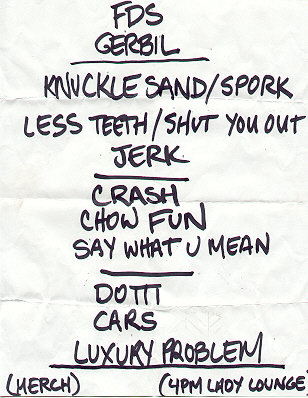 FDS
GERBIL
KNUCKLE SAND/SPORK
LESS TEETH/SHUT YOU OUT
JERK
CRASH
CHOW FUN
SAY WHAT U MEAN
DOTTI
CARS
LUXURY PROBLEM
(MERCH) (4PM LADY LOUNGE)